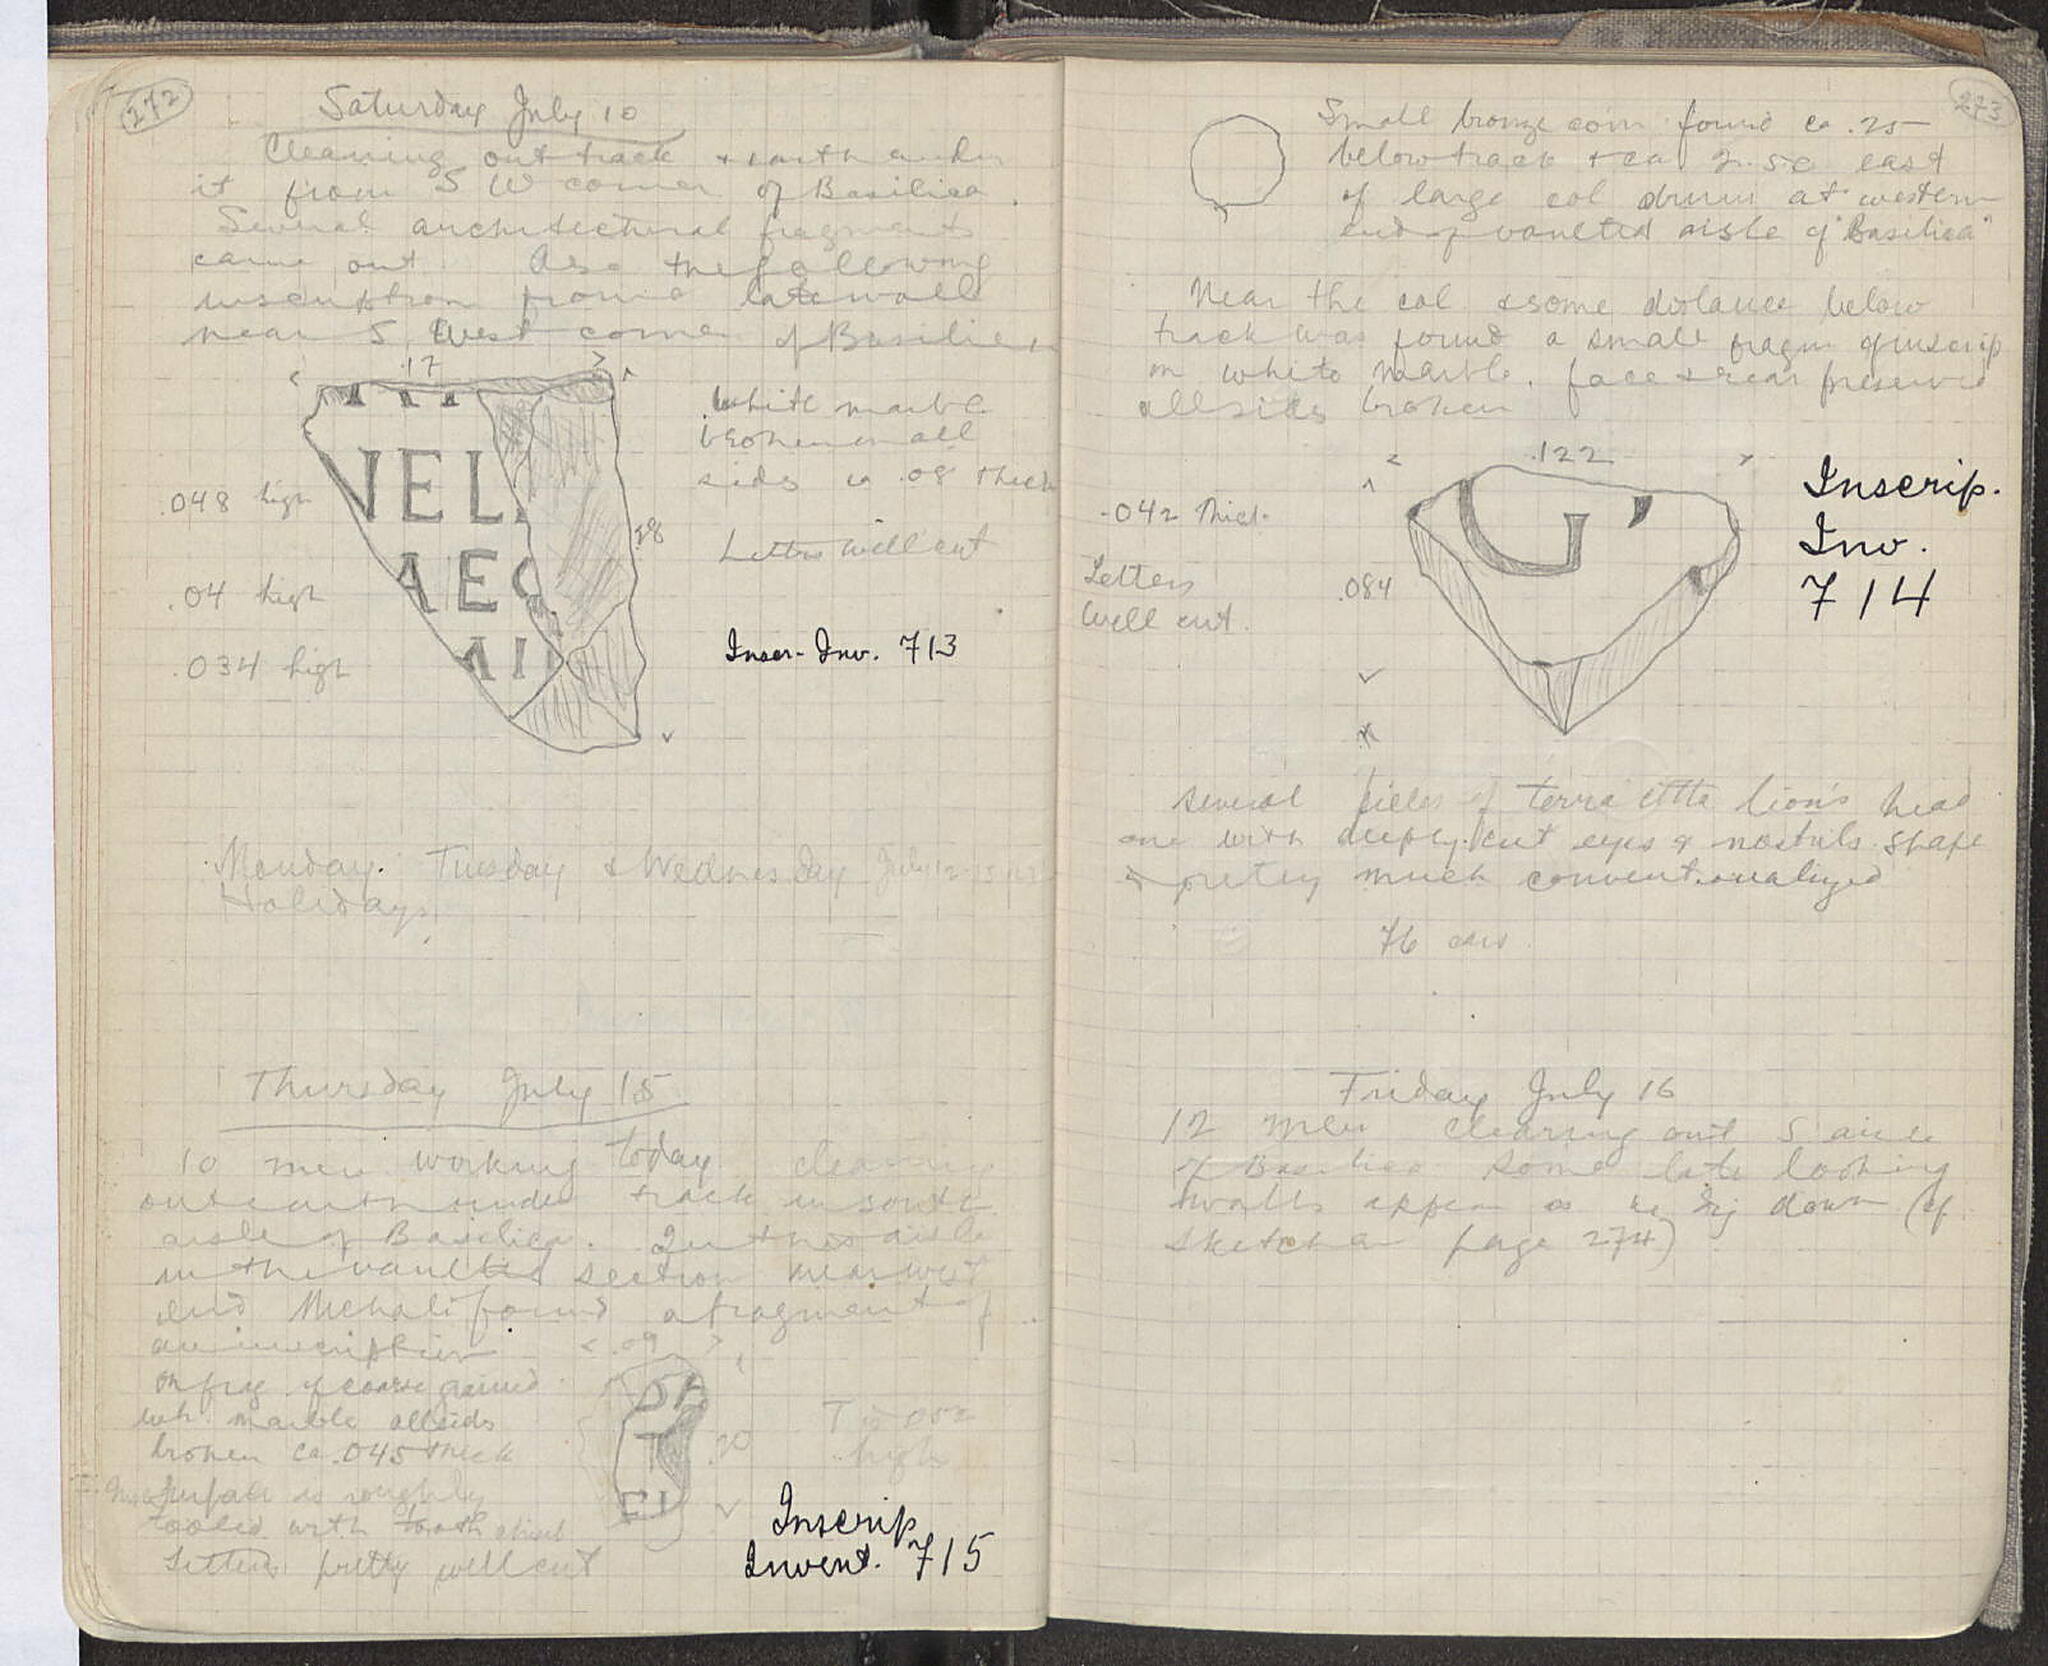 272
Saturday July 10
Cleaning out track + earth under
it from S W corner of Basilica.
Several architectural fragments
came out. Also the following
inscription from a late wall
near S. West corner of Basilica
.17
VEL
AEC
.048 high
.04 high
.034 high
.28
White marble
broken on all
sides ca .08 thick
Letters well cut
Inscr. Inv. 713
Monday. Tuesday & Wednesday July 12-13
Holidays
Thursday July 15
10 men working today cleaning
out earth under track in south
aisle of Basilica. In this aisle
in the vaulted section near west
end Mehali found a fragment of
an inscription
on frag of coarse grained
wh. marble all sides
broken ca .045 thick
surface is roughly
tooled with tooth chisel
Letters pretty well cut
.09
T
EI
.20
T is .052
high
Inscrip
Invent. 715
273
Small bronze coin found ca .25
below track + ca 2.50 east
of large col drum at western
end of vaulted aisle of "Basilica"
Near the col & some distance below
track was found a small fragm of inscrip
on white marble. face & rear preserved
all sides broken
.122
G'
.042 thick.
Letters
well cut.
.084
Inscrip.
Inv.
714
Several pieces of terra cotta lion's head
one with deeply cut eyes & nostrils. shape
pretty much conventionalized
76 cars
Friday July 16
12 men clearing out S aisle
of Basilica some late looking
walls appear as we dig down (cf
sketch on page 274)